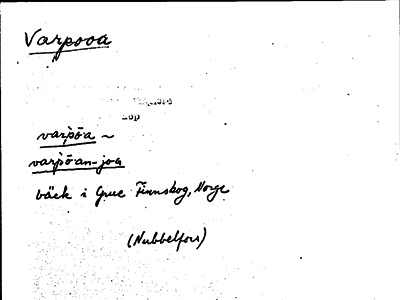 Varpooa
varpöa ~
varpöan-joa
bäck i Grue Finnskog, Norge
(Nubbelfors)